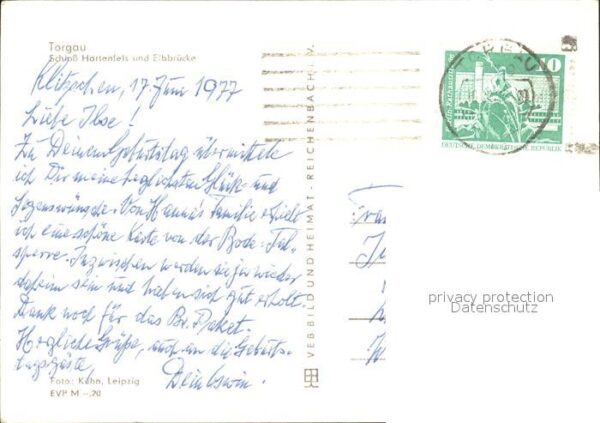 Torgau
Schloß Hartenfels und Elbbrücke
Klitzschen, 17. Juni 1977
Liebe Ilse!
Zu Deinem Geburtstag übermittele
ich Dir meine herzlichsten Glück- und
Segenswünsche. Von Hanna's Familie erhielt
ich eine schöne Karte von der Bode-Tal-
sperre. Inzwischen werden sie ja wieder
daheim sein und haben sich gut erholt.
Dank noch für das Br. Paket.
Herzliche Grüße, auch an die Geburts-
tagsgäste,
Dein
Foto: Kühn, Leipzig
EVP M -,20
VEB BILD UND HEIMAT · REICHENBACH i. V.
TORGAU
10
DEUTSCHE DEMOKRATISCHE REPUBLIK
Frau
privacy protection
Datenschutz